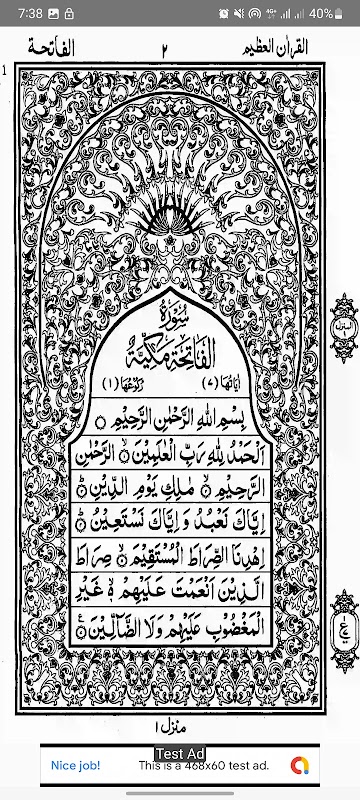 7:38 4G+ 40%
الفاتحة ٢ القرآن العظيم
1
سُوْرَةُ
الْفَاتِحَةِ مَكِّيَّةٌ
اٰیَاتُهَا (٧) رُكُوْعُهَا (١)
بِسْمِ اللهِ الرَّحْمٰنِ الرَّحِيْمِ ۝
اَلْحَمْدُ لِلّٰهِ رَبِّ الْعٰلَمِيْنَ ۝ الرَّحْمٰنِ
الرَّحِيْمِ ۝ مٰلِكِ يَوْمِ الدِّيْنِ ۝
اِيَّاكَ نَعْبُدُ وَ اِيَّاكَ نَسْتَعِيْنُ ۝
اِهْدِنَا الصِّرَاطَ الْمُسْتَقِيْمَ ۝ صِرَاطَ
الَّذِيْنَ اَنْعَمْتَ عَلَيْهِمْ ۝ غَيْرِ
الْمَغْضُوْبِ عَلَيْهِمْ وَلَا الضَّآلِّيْنَ ۝
منزل ١
Test Ad
Nice job! This is a 468x60 test ad.